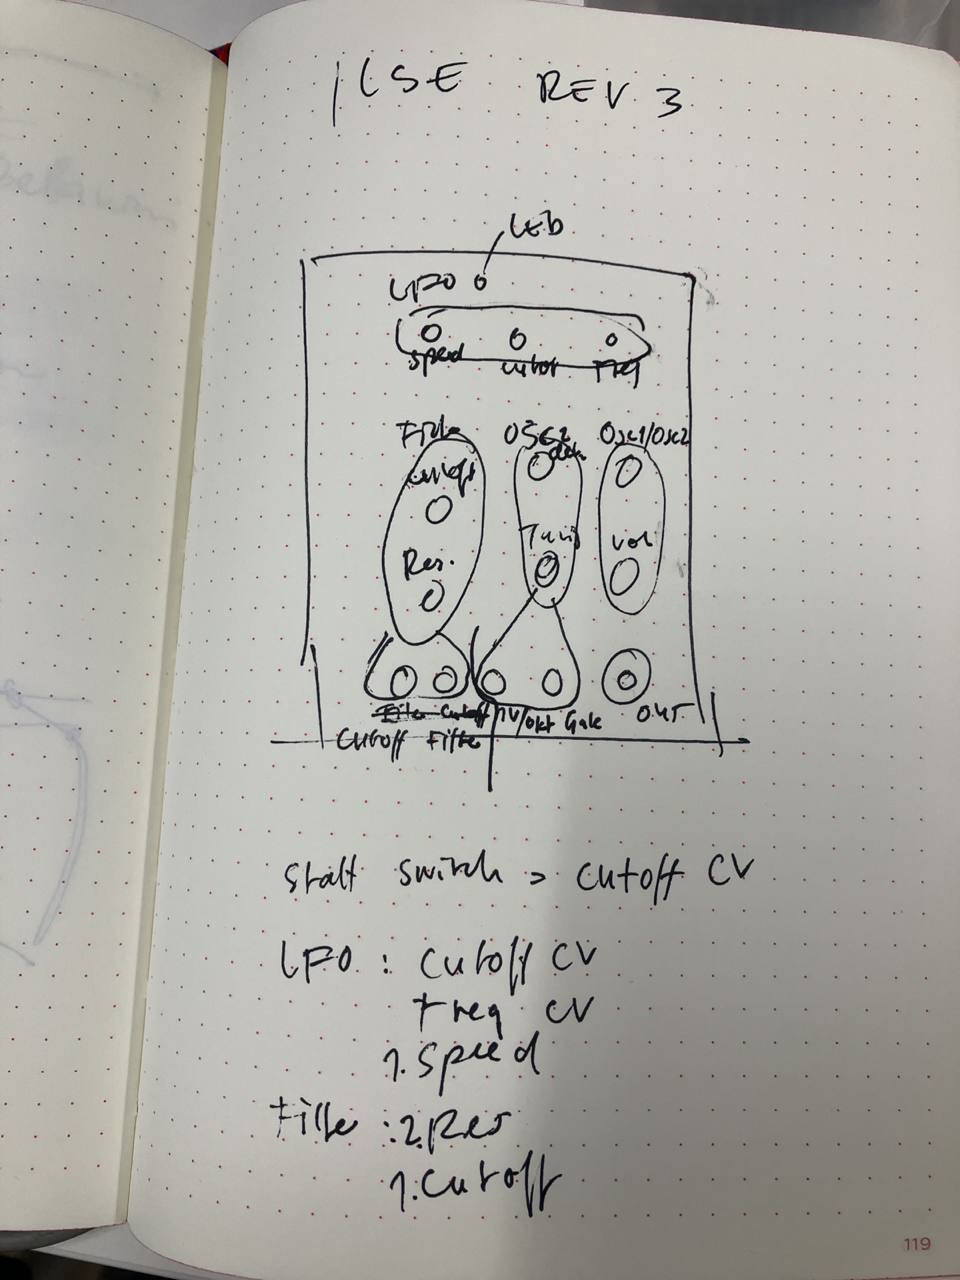 ILSE REV 3
LED
LFO
Speed Cutoff Freq
Filter OSC2 Osc1/Osc2
Cutoff
Tune Vol
Res.
Filter Cutoff 1V/Okt Gate OUT
Cutoff Filter
statt switch > cutoff CV
LFO : Cutoff CV
Freq CV
1. Speed
Filter : 2. Res
1. Cutoff
119